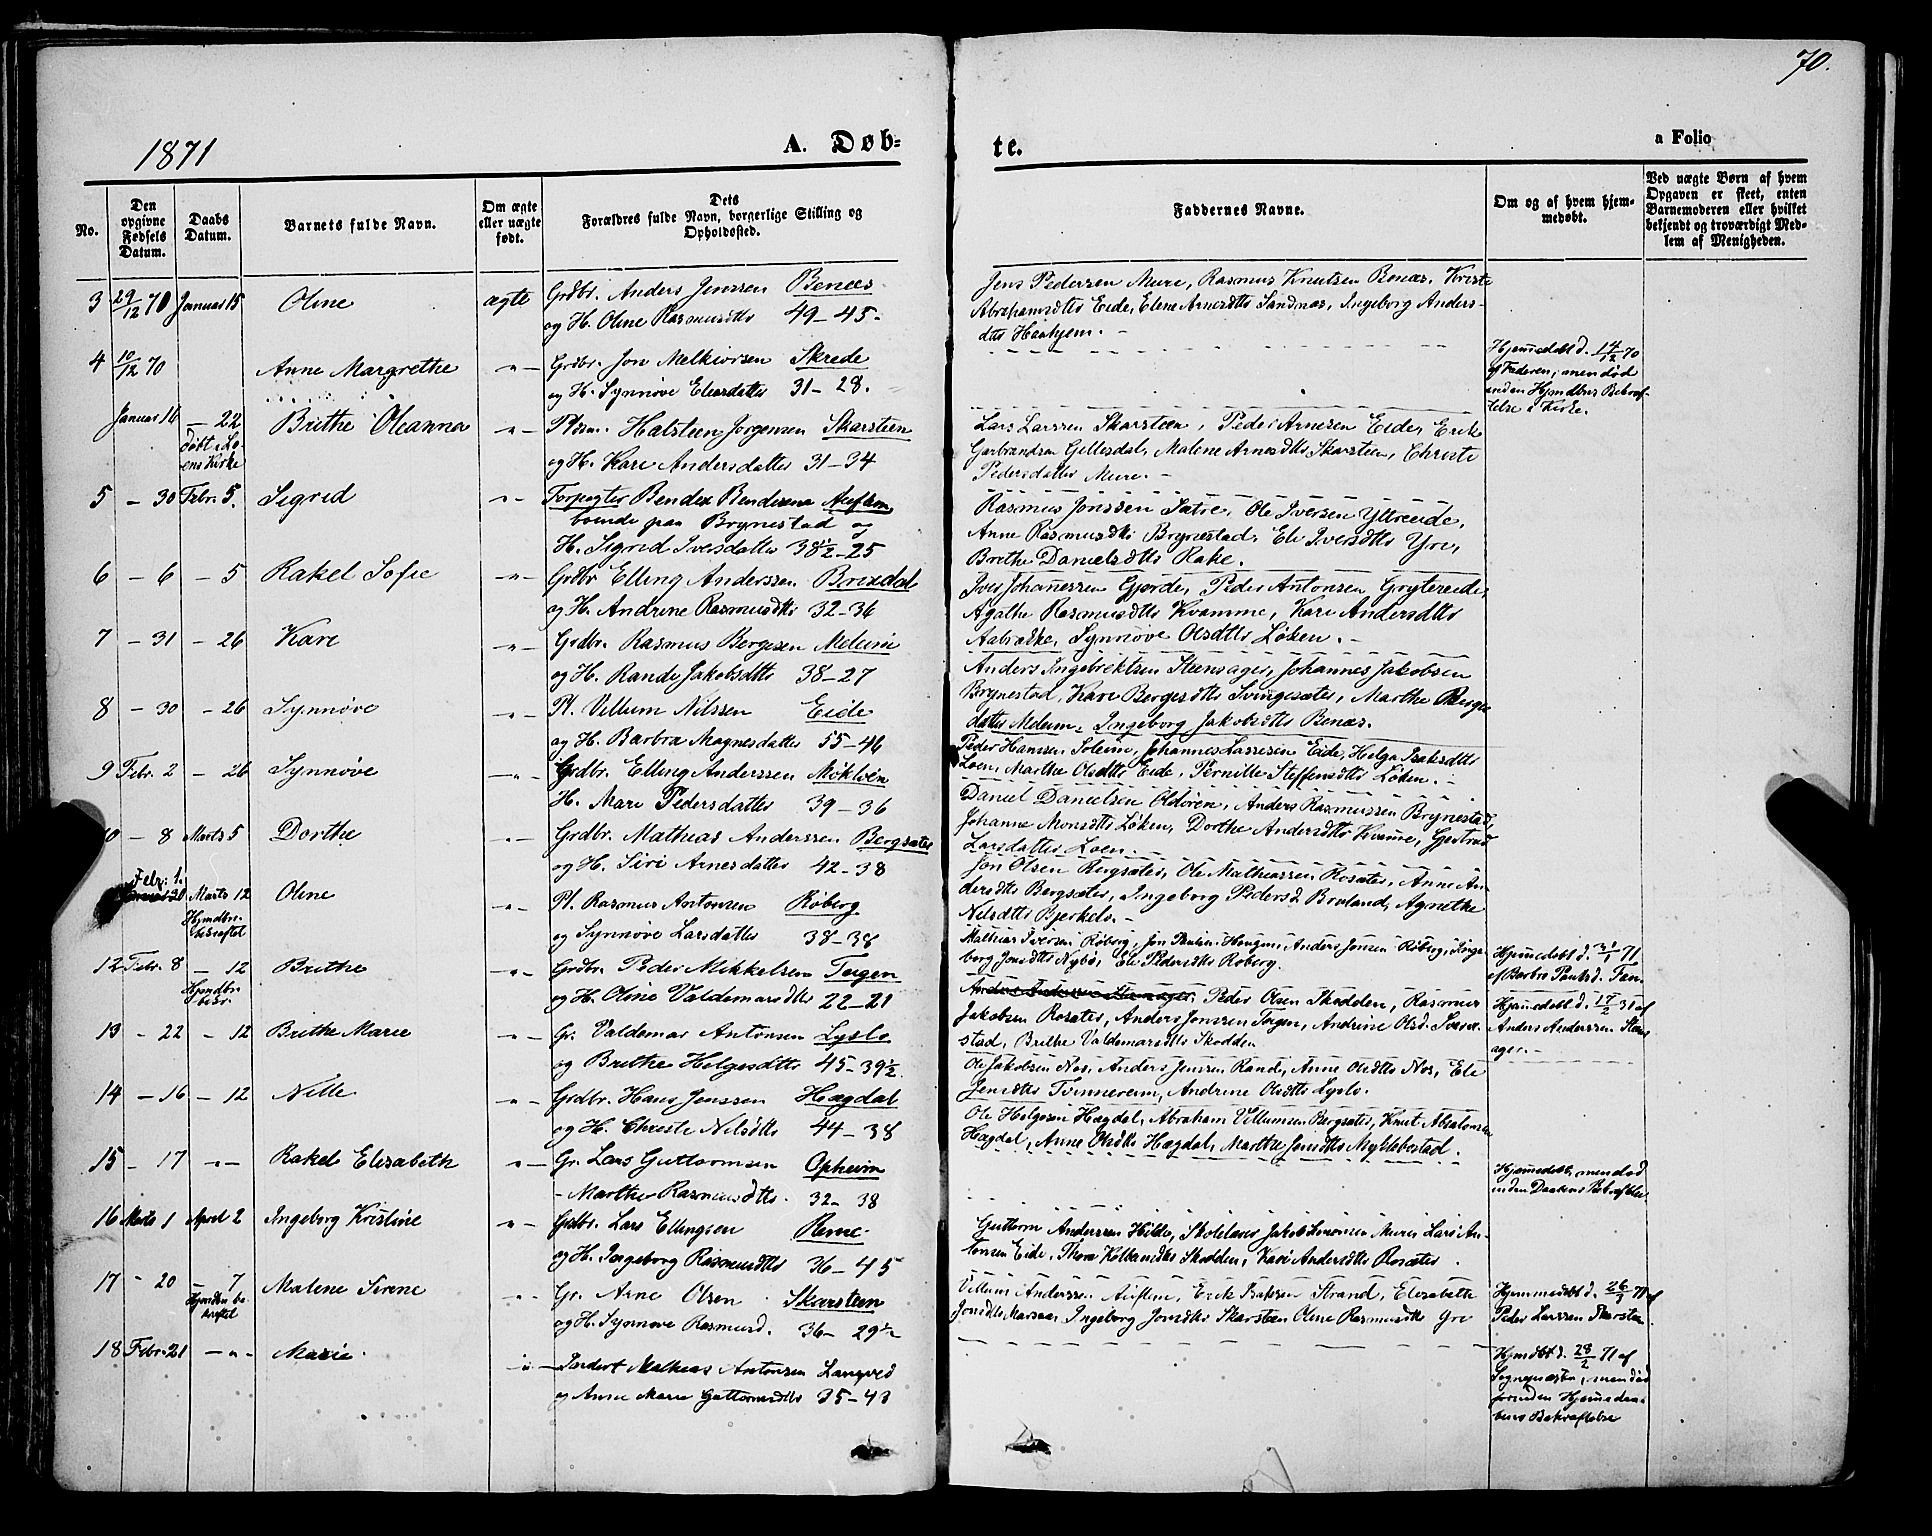 70.
1871
A. Døb-
te.
a Folio
No.
Den opgivne Fødsels Datum.
Daabs Datum.
Barnets fulde Navn.
Om ægte eller uægte født.
Dets Forældres fulde Navn, borgerlige Stilling og Opholdssted.
Faddernes Navne.
Om og af hvem hjemmedøbt.
Ved uægte Børn af hvem Opgaven er skeet, enten Barnemoderen eller hvilket bekjendt og troværdigt Medlem af Menigheden.
3 29/12 70 Januar 15 Oline ægte Grdbr. Anders Jenssen Benæs
og H. Oline Rasmusdttr 49-45-
Jens Pedersen Mure, Rasmus Knutsen Benæs, Kriste
Abrahamsdttr Eide, Elene Arnesdttr Sandnæs, Ingeborg Anders-
dttr Haahjem. -
4 10/12 70 Anne Margrethe -"- Grdbr. Jon Melkiorsen Skrede
og H. Synnøve Eliasdatter 31-28.
Hjemmedøbt d. 14/12 70
af Faderen, men død
inden Hjmdbns Bekræf-
telse i Kirke.
Januar 16 - 22 Brithe Oleanna -"- Plsm. Halsteen Jørgensen Skarsteen
døbt i Lo-
ens Kirke
og H. Kari Andersdatter 31-34
Lars Larssen Skarsteen, Peder Arnesen Eide, Erik
Garbrandsen Gillesdal, Malene Arnesdttr Skarsteen, Christi
Pedersdatter Mure. -
5 - 30 Febr. 5. Sigrid "- Forpagter Bendix Bendixena Auflem
boende paa Brynestad og
H. Sigrid Iversdatter 38½-25
Rasmus Jonssen Sætre, Ole Iversen Yttreeide,
Anne Rasmusdttr Brynestad, Eli Iversdttr Yri,
Brithe Danielsdttr Rake.
6 - 6 - 5 Rakel Sofie -"- Grdbr Elling Anderssen Brixdal
og H. Andrine Rasmusdttr 32-36
Iver Johanessen Gjørde, Peder Antonsen Grytereide,
Agathe Rasmusdttr Kvamme, Kari Andersdttr
Aabrække, Synnøve Olsdttr Løken. -
7 - 31 - 26 Kari -"- Grdbr. Rasmus Bergesen Meleim
og H. Randi Jakobsdttr 38-27
Anders Ingebrektsen Steensager, Johannes Jakobsen
Brynestad, Kari Bergesdttr Svingesæter, Marthe Berges
datter Melum, Ingeborg Jakobsdttr Benæs.
8 - 30 - 26 Synnøve -"- Pl. Villum Nilssen Eide
og H. Barbra Magnesdatter 55-46
Peder Hanssen Soleim, Johannes Lassesen Eide, Helga Isaksdttr
Loen, Marthe Olsdttr Eide, Pernille Steffensdttr Løken. -
9 Febr. 2 - 26 Synnøve -"- Grdbr. Elling Anderssen Mökløin
H. Mari Pedersdatter 39-36
Daniel Danielsen Oldören, Anders Rasmussen Brynestad,
Johanne Monsdttr Löken, Dorthe Andersdttr Kvame, Gjertrud
Larsdatter Loen. -
10 - 8 Marts 5 Dorthe -"- Grdbr. Mathias Anderssen Bergsæter
og H. Siri Arnesdatter 42-38
Jon Olsen Bergsæter, Ole Mathiassen Rosæter, Anne An-
dersdttr Bergsæter, Ingeborg Pedersd Bruland, Agnethe
Nilsdttr Bjerkelo. -
Febr. 1. Marts 12 Oline -"- Pl. Rasmus Antonsen Röberg
Hjmdbn.
bekræftet
og Synnøve Larsdatter 38-38
Mathias Iversen Röberg, Jon Paulsen Haugen, Anders Jonsen Röberg, Inge-
borg Jonsdttr Nybö, Eli Pedersdttr Röberg.
Hjemedøbt d. 31/1 71
af Barbro Paulsd.
12 Febr. 8 - 12 Brithe -"- Grdbr. Peder Mikkelsen Tugen
Hjmdbn
bekr.
og H. Oline Valdemarsdttr 22-21
Peder Olsen Skodden, Rasmus
Jakobsen Rosæter, Anders Jonssen Tugen, Andrine Olsd.
stad, Brithe Valdemarsdttr Skodden
Hjemmedøbt d. 17/2 31 af
Anders Anderssen Stens-
ager. -
13 - 22 - 12 Brithe Marie -"- Gr. Valdemar Antonsen Lyslo
og Brithe Helgesdttr 45-39½.
Ole Jakobsen Nos, Anders Jenssen Rand, Anne Olsdttr Nos, Eli
Jensdttr Tvinnereim, Andrine Olsdttr Lyslo.
14 - 16 - 12 Nille -"- Grdbr. Hans Jenssen Hægdal
og H. Christi Nilsdttr 44-38
Ole Helgesen Hægdal, Abraham Villumsen Bergsæter, Knut Absalonsen
Hægdal, Anne Olsdttr Hægdal, Marthe Jonsdttr Myklebostad.
15 - 17 -"- Rakel Elisabeth -"- Gr. Lars Guttormsen Opheim
- Marthe Rasmusdttr. 32-38
Hjemmedøbt, men død
inden Daabens Bekræftelse
16 Marts 1 April 2 Ingeborg Kristine -"- Grdbr. Lars Ellingsen Reme
og H. Ingeborg Rasmusdttr 36-45
Guttorm Anderssen Hilde, Skolelærer Jakob Simonsen Muri, Lars An-
tonsen Eide, Thora Kolbansdttr Skodden, Kari Andersdttr Rosæter.
17 - 20 - 7 Malene Sirene -"- Gr. Arne Olsen Skarsteen
Hjmdbn be-
kræftet
og H. Synnøve Rasmusd. 36-29½
Villum Anderssen Auflem, Erik Isaksen Strand, Elisabethe
Jonsdttr Ingeborg Jonsdttr Skarsteen Oline Rasmusdttr Yri
Hjemmedøbt d. 26/3 71 af
Peder Larssen Skarsten
18 Febr. 21 -"- Marie. -"- Mathias Antonsen Langved
og Anne Marie Guttormsdttr 35-43
Hjmdbt d. 28/2 71 af
Sognepræsten, men død
forinden Hjemmedaa-
bens Bekræftelse